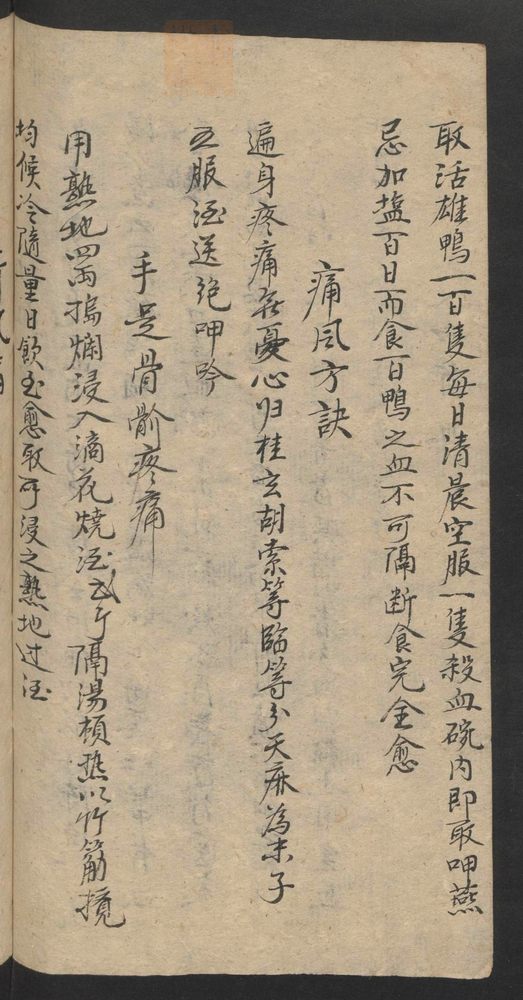 取活雄鴨一百隻每日清晨空服一隻殺血碗内即取呷燕
忌加塩百日而食百鴨之血不可隔断食完全愈
痛风方訣
遍身疼痛无憂心归桂玄胡索等臨等分天麻為末子
五服酒送絶呻吟
手足骨節疼痛
用熟地四两搗爛浸入滴花燒酒弍斤隔湯頓热以竹筯攪
均候冷隨量日飲至愈取所浸之熟地过酒